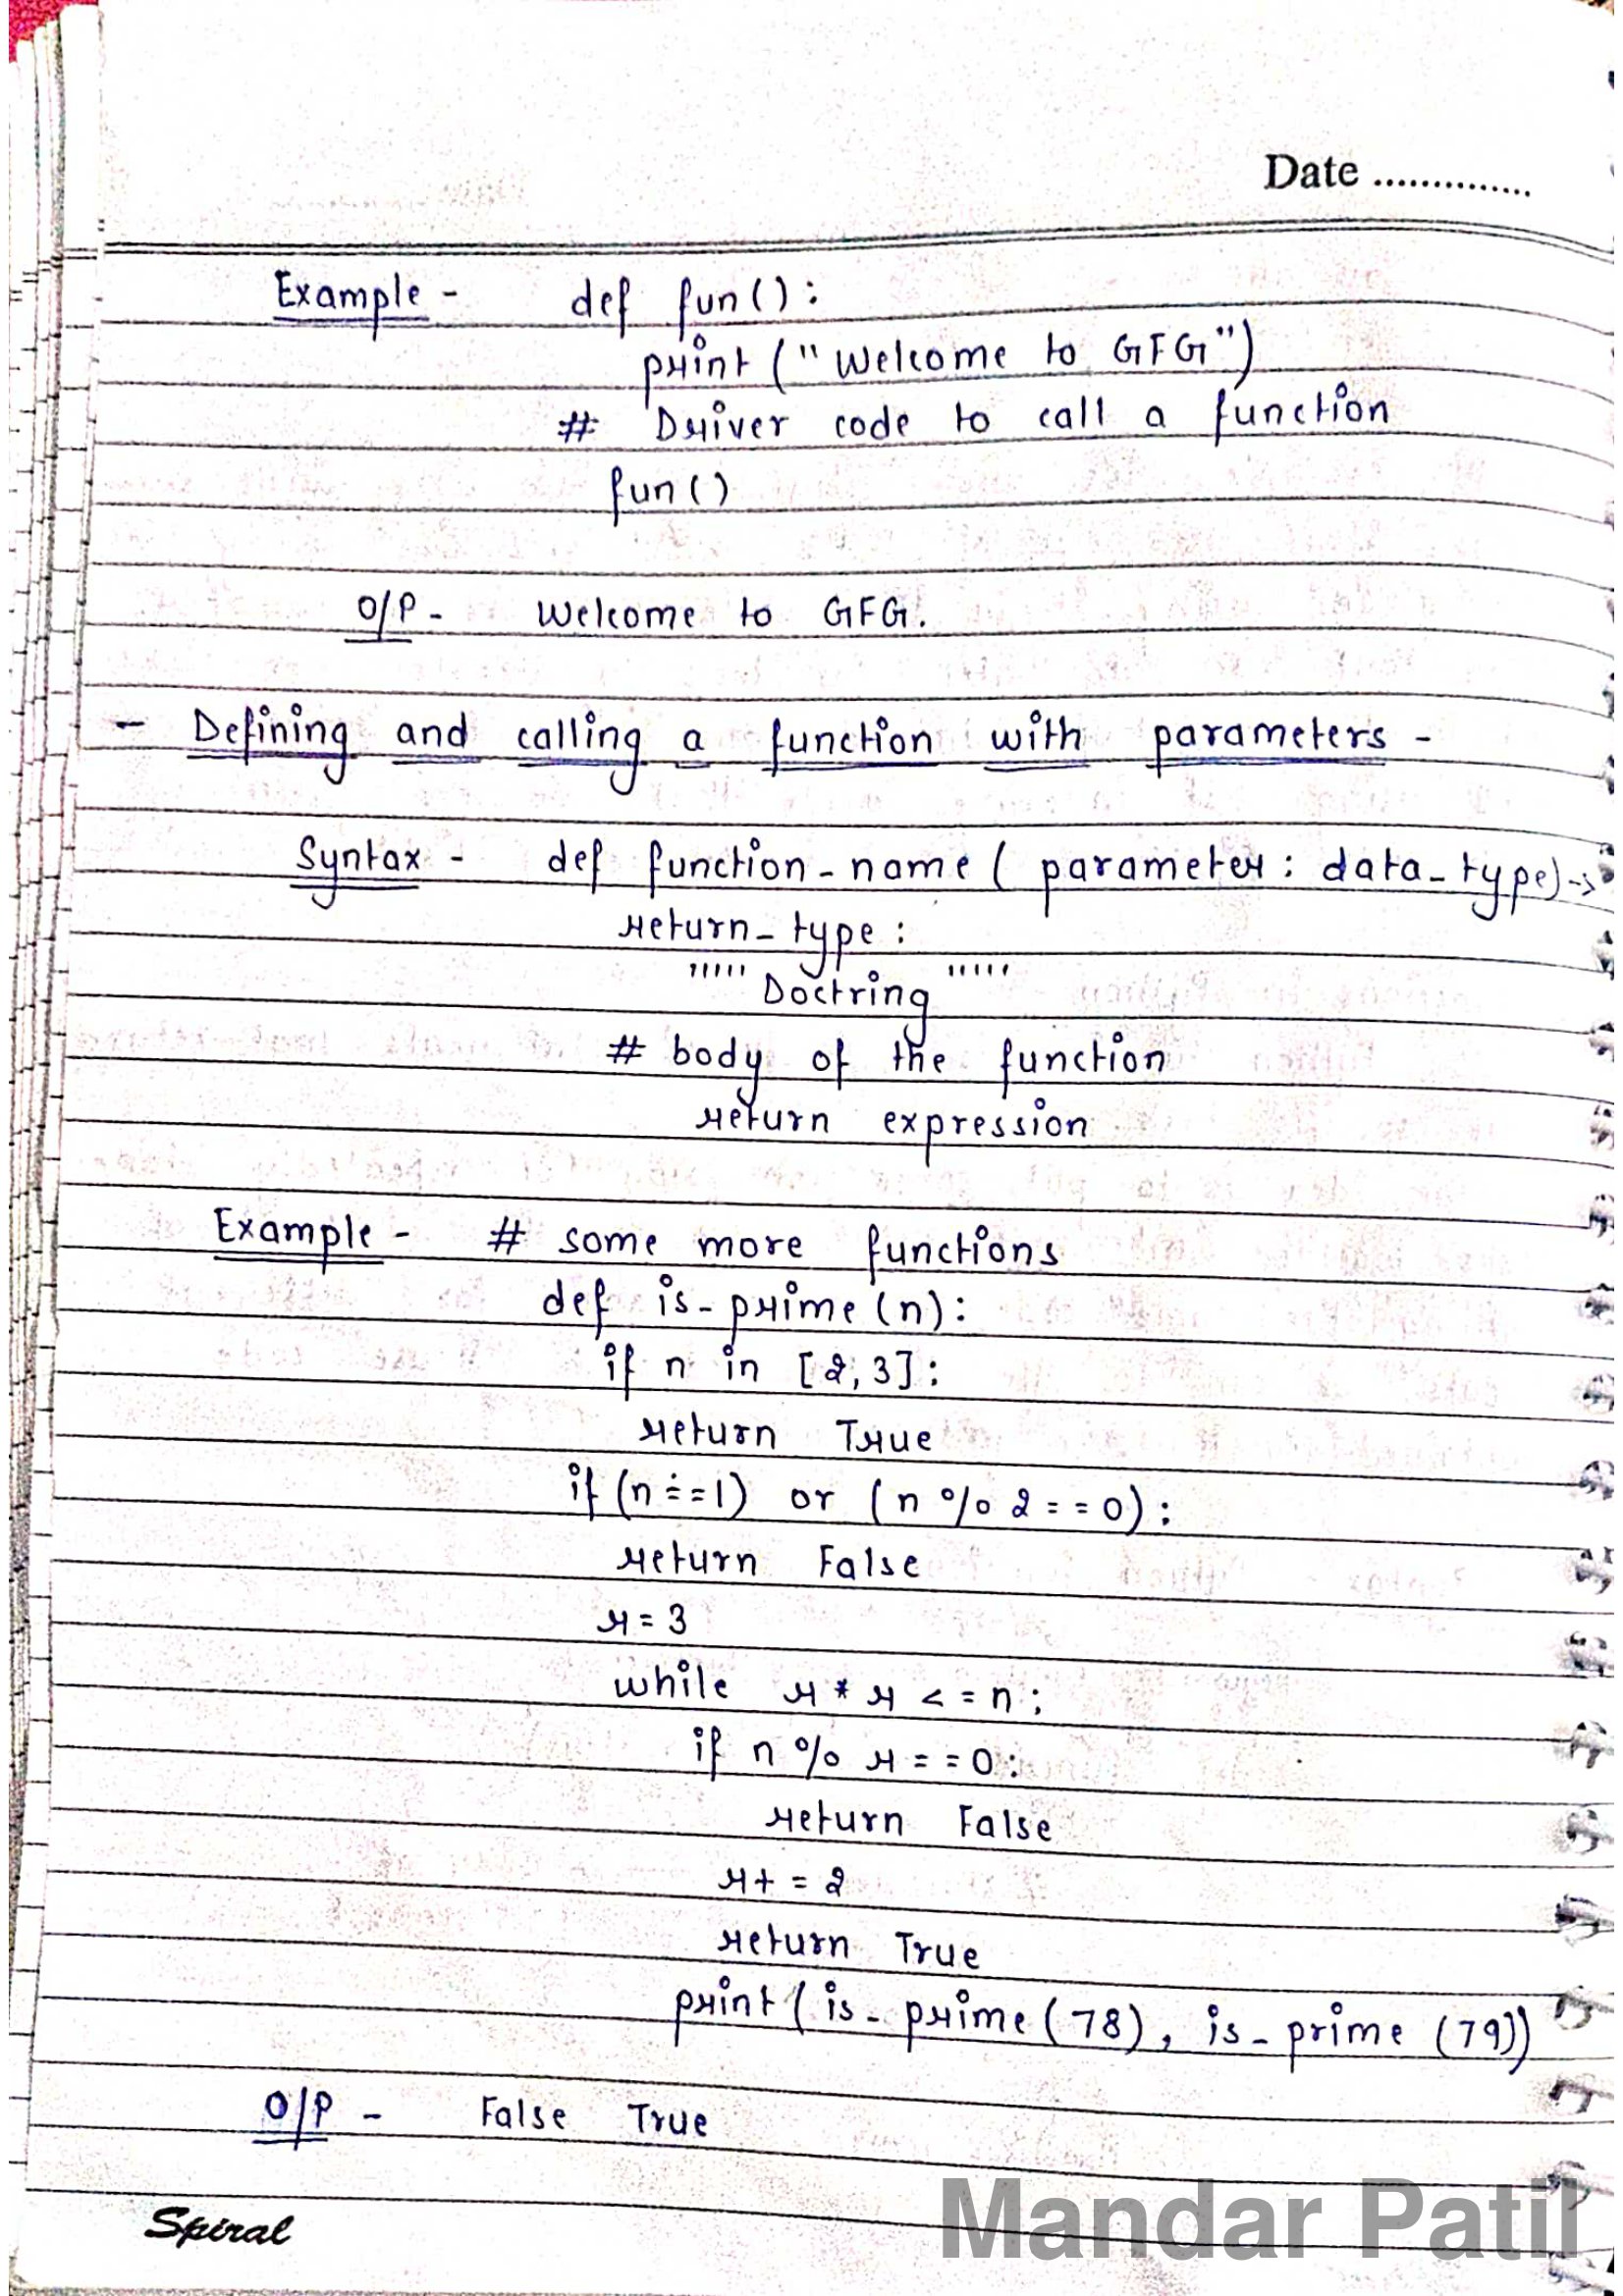 Date ..............
Example - def fun():
print ("Welcome to GFG")
# Driver code to call a function
fun()
O/P - Welcome to GFG.
- Defining and calling a function with parameters -
Syntax - def function-name ( parameter : data_type) ->
return_type :
""" Doctring """
# body of the function
return expression
Example - # some more functions
def is-prime (n):
if n in [2,3]:
return True
if (n==1) or (n % 2 == 0):
return False
r = 3
while r * r <= n:
if n % r == 0:
return False
r+ = 2
return True
print ( is_prime (78), is-prime (79))
O/P - False True
Spiral
Mandar Patil